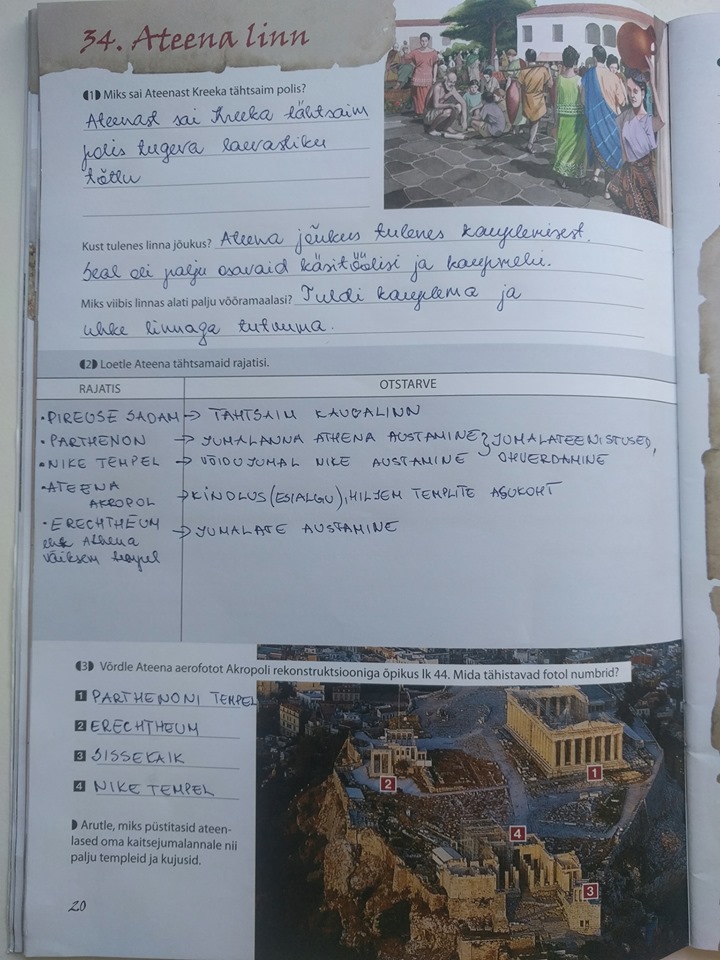 34. Ateena linn
1 Miks sai Ateenast Kreeka tähtsaim polis?
Ateenast sai Kreeka tähtsaim
polis tugeva laevastiku
tõttu
Kust tulenes linna jõukus? Ateena jõukus tulenes kauplemisest.
Seal oli palju osavaid käsitöölisi ja kaupmehi.
Miks viibis linnas alati palju võõramaalasi? Tuldi kauplema ja
uhke linnaga tutvuma.
2 Loetle Ateena tähtsamaid rajatisi.
RAJATIS OTSTARVE
• PIREUSE SADAM → TÄHTSAIM KAUBALINN
• PARTHENON → JUMALANNA ATHENA AUSTAMINE } JUMALATEENISTUSED,
• NIKE TEMPEL → VÕIDUJUMAL NIKE AUSTAMINE OHVERDAMINE
• ATEENA
AKROPOL → KINDLUS (ESIALGU), HILJEM TEMPLITE ASUKOHT
• ERECHTHEUM
ehk Athena → JUMALATE AUSTAMINE
väiksem tempel
3 Võrdle Ateena aerofotot Akropoli rekonstruktsiooniga õpikus lk 44. Mida tähistavad fotol numbrid?
1 PARTHENONI TEMPEL
2 ERECHTHEUM
3 SISSEKÄIK
4 NIKE TEMPEL
Arutle, miks püstitasid ateen-
lased oma kaitsejumalannale nii
palju templeid ja kujusid.
1
2
4
3
20